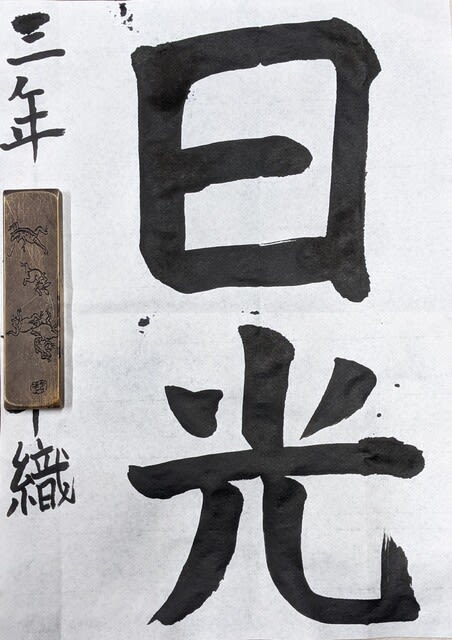 日光
三年
織